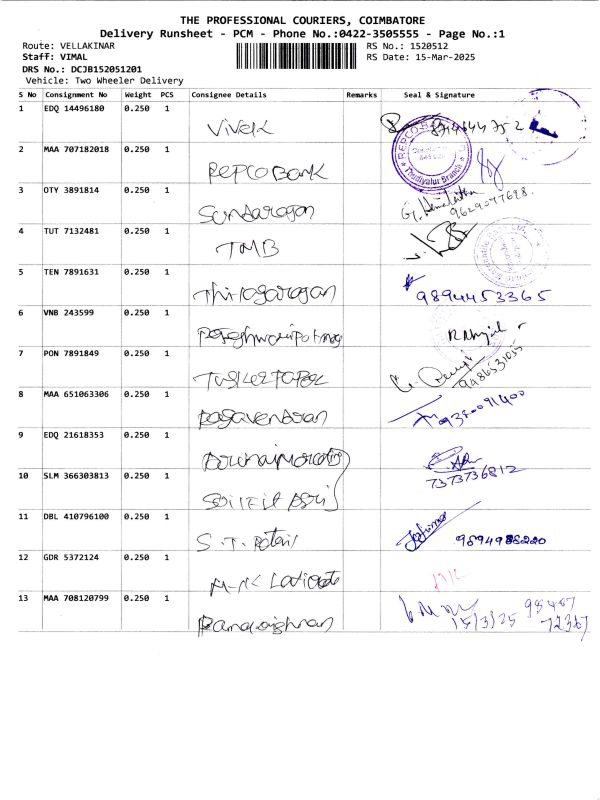 THE PROFESSIONAL COURIERS, COIMBATORE
Delivery Runsheet - PCM - Phone No.:0422-3505555 - Page No.:1
Route: VELLAKINAR RS No.: 1520512
Staff: VIMAL RS Date: 15-Mar-2025
DRS No.: DCJB152051201
Vehicle: Two Wheeler Delivery
S No Consignment No Weight PCS Consignee Details Remarks Seal & Signature
1 EDQ 14496180 0.250 1 Vivek
2 MAA 707182018 0.250 1 REPCO Bank REPCO Thudiyalur Branch
3 OTY 3891814 0.250 1 Sundaragan 9629077698
4 TUT 7132481 0.250 1 TMB
5 TEN 7891631 0.250 1 Thiyagaragan 9894453365
6 VNB 243599 0.250 1
7 PON 7891849 0.250 1
8 MAA 651063306 0.250 1 Ragavendran
9 EDQ 21618353 0.250 1 7373736812
10 SLM 366303813 0.250 1
11 DBL 410796100 0.250 1 S.T. 9894986220
12 GDR 5372124 0.250 1
13 MAA 708120799 0.250 1 15/3/25